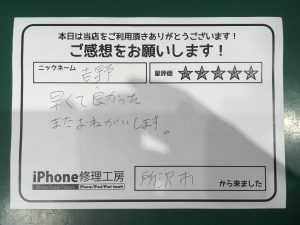 本日は当店をご利用頂きありがとうございます！
ご感想をお願いします！
ニックネーム 吉野
星評価 ★★★★★
早くて良かった
またおねがいします。
iPhone修理工房
iPhone/iPad/iPod touch
所沢市 から来ました